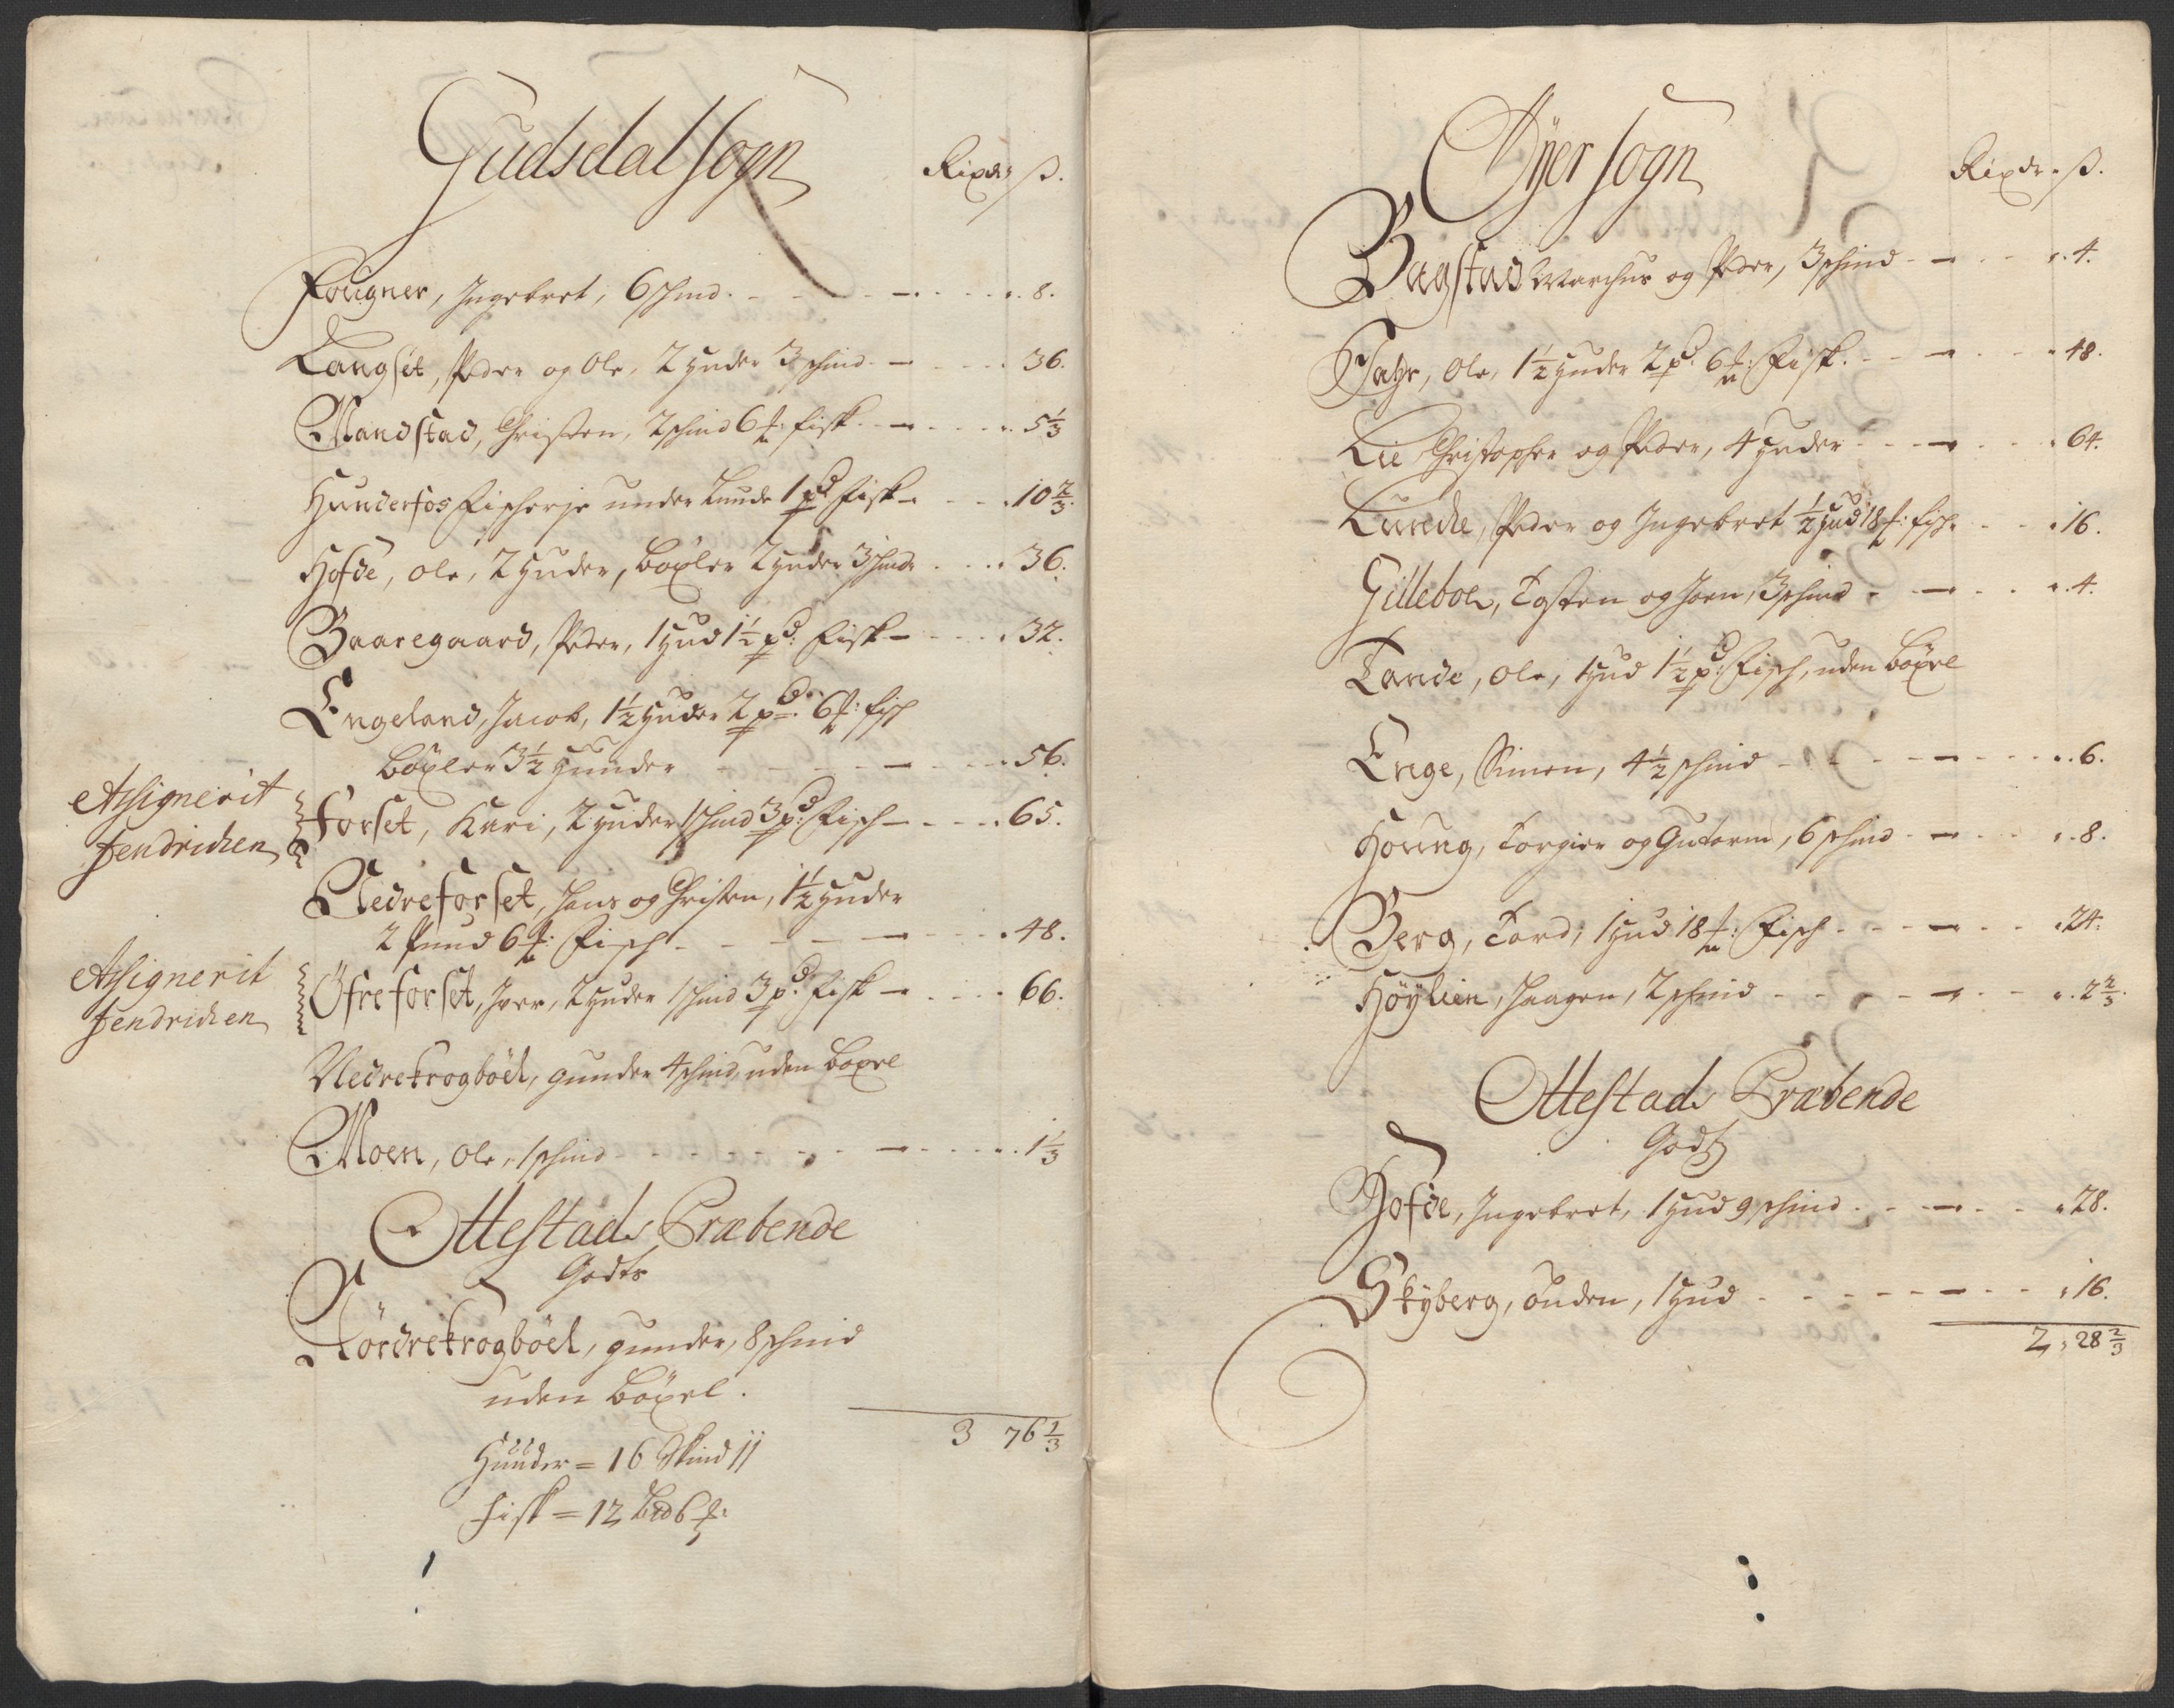 Gudsdal sogn
Rixdr ß.
Fougner, Ingebret, 6 schind - - 8.
Langset, Peder og Ole, 2 huder 3 schind - 36.
Mandstad, Christen, 2 schind 6 ℔: fisk - 5 1/3
Hunderfos Fischerje under Lunde 1 pd Fisk - 10 2/3.
Hofde, Ole, 2 huder, böxler 2 huder 3 schind 36.
Baaregaard, Peder, 1 hud 1 1/2 pd: Fisk - 32.
Engeland, Jacob, 1 1/2 huder 2 pd: 6 ℔: fisch
böxler 3 1/2 hunder - 56.
Assignerit
Fendrichen
Forset, Kari, 2 huder 1 schind 3 pd: Fisch - 65.
Nedreforset, Hans og Christen, 1 1/2 huder
2 Pund 6 ℔: Fisch - 48.
Assignerit
Fendrichen
Öfreforset, Iver, 2 huder 1 schind 3 pd: Fisk - 66.
Nedrekrogböel, gunder 4 schind, uden böxel
Moen, Ole, 1 schind - 1 1/3
Ottestads Præbende
Godts
Nördrekrogböel, gunder, 8 schind
uden böxel.
3 76 1/3
Hüüder = 16 Skind 11
Fisk = 12 bd 6 ℔:
Öyer sogn
Rixdr. ß.
Bagstad Marchus og Peder, 3 schind - 4.
Tahr, Ole, 1 1/2 huder 2 pd: 6 ℔: Fisk. - 48.
Lie Christopher og Peder, 4 huder - 64.
Lunde, Peder og Ingebret 1/2 hud 18 ℔: fisch. 16.
Gilleboe, Tosten og Joen, 3 schind - 4.
Tande, Ole, 1 hud 1 1/2 pd: Fisch, uden böxel
Enge, Simen, 4 1/2 schind - 6.
Houng, Torgier og Gutorm, 6 schind - 8.
Berg, Tord, 1 hud 18 ℔: Fisch - 24.
Höylien, Haagen, 2 schind - 2 2/3.
Ottestads Præbende
Godtz
Hofde, Ingebret, 1 hud 9 schind - 28.
Skyberg, Anden, 1 hud - 16.
2, 28 2/3